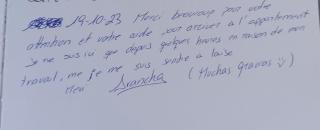 19-10-23 Merci beaucoup pour votre
attention et votre aide pour arriver à l'appartement
Je ne suis ici que depuis quelques heures en raison de mon
travail, me je me suis sentie à l'aise
Merci Arancha (Muchas gracias